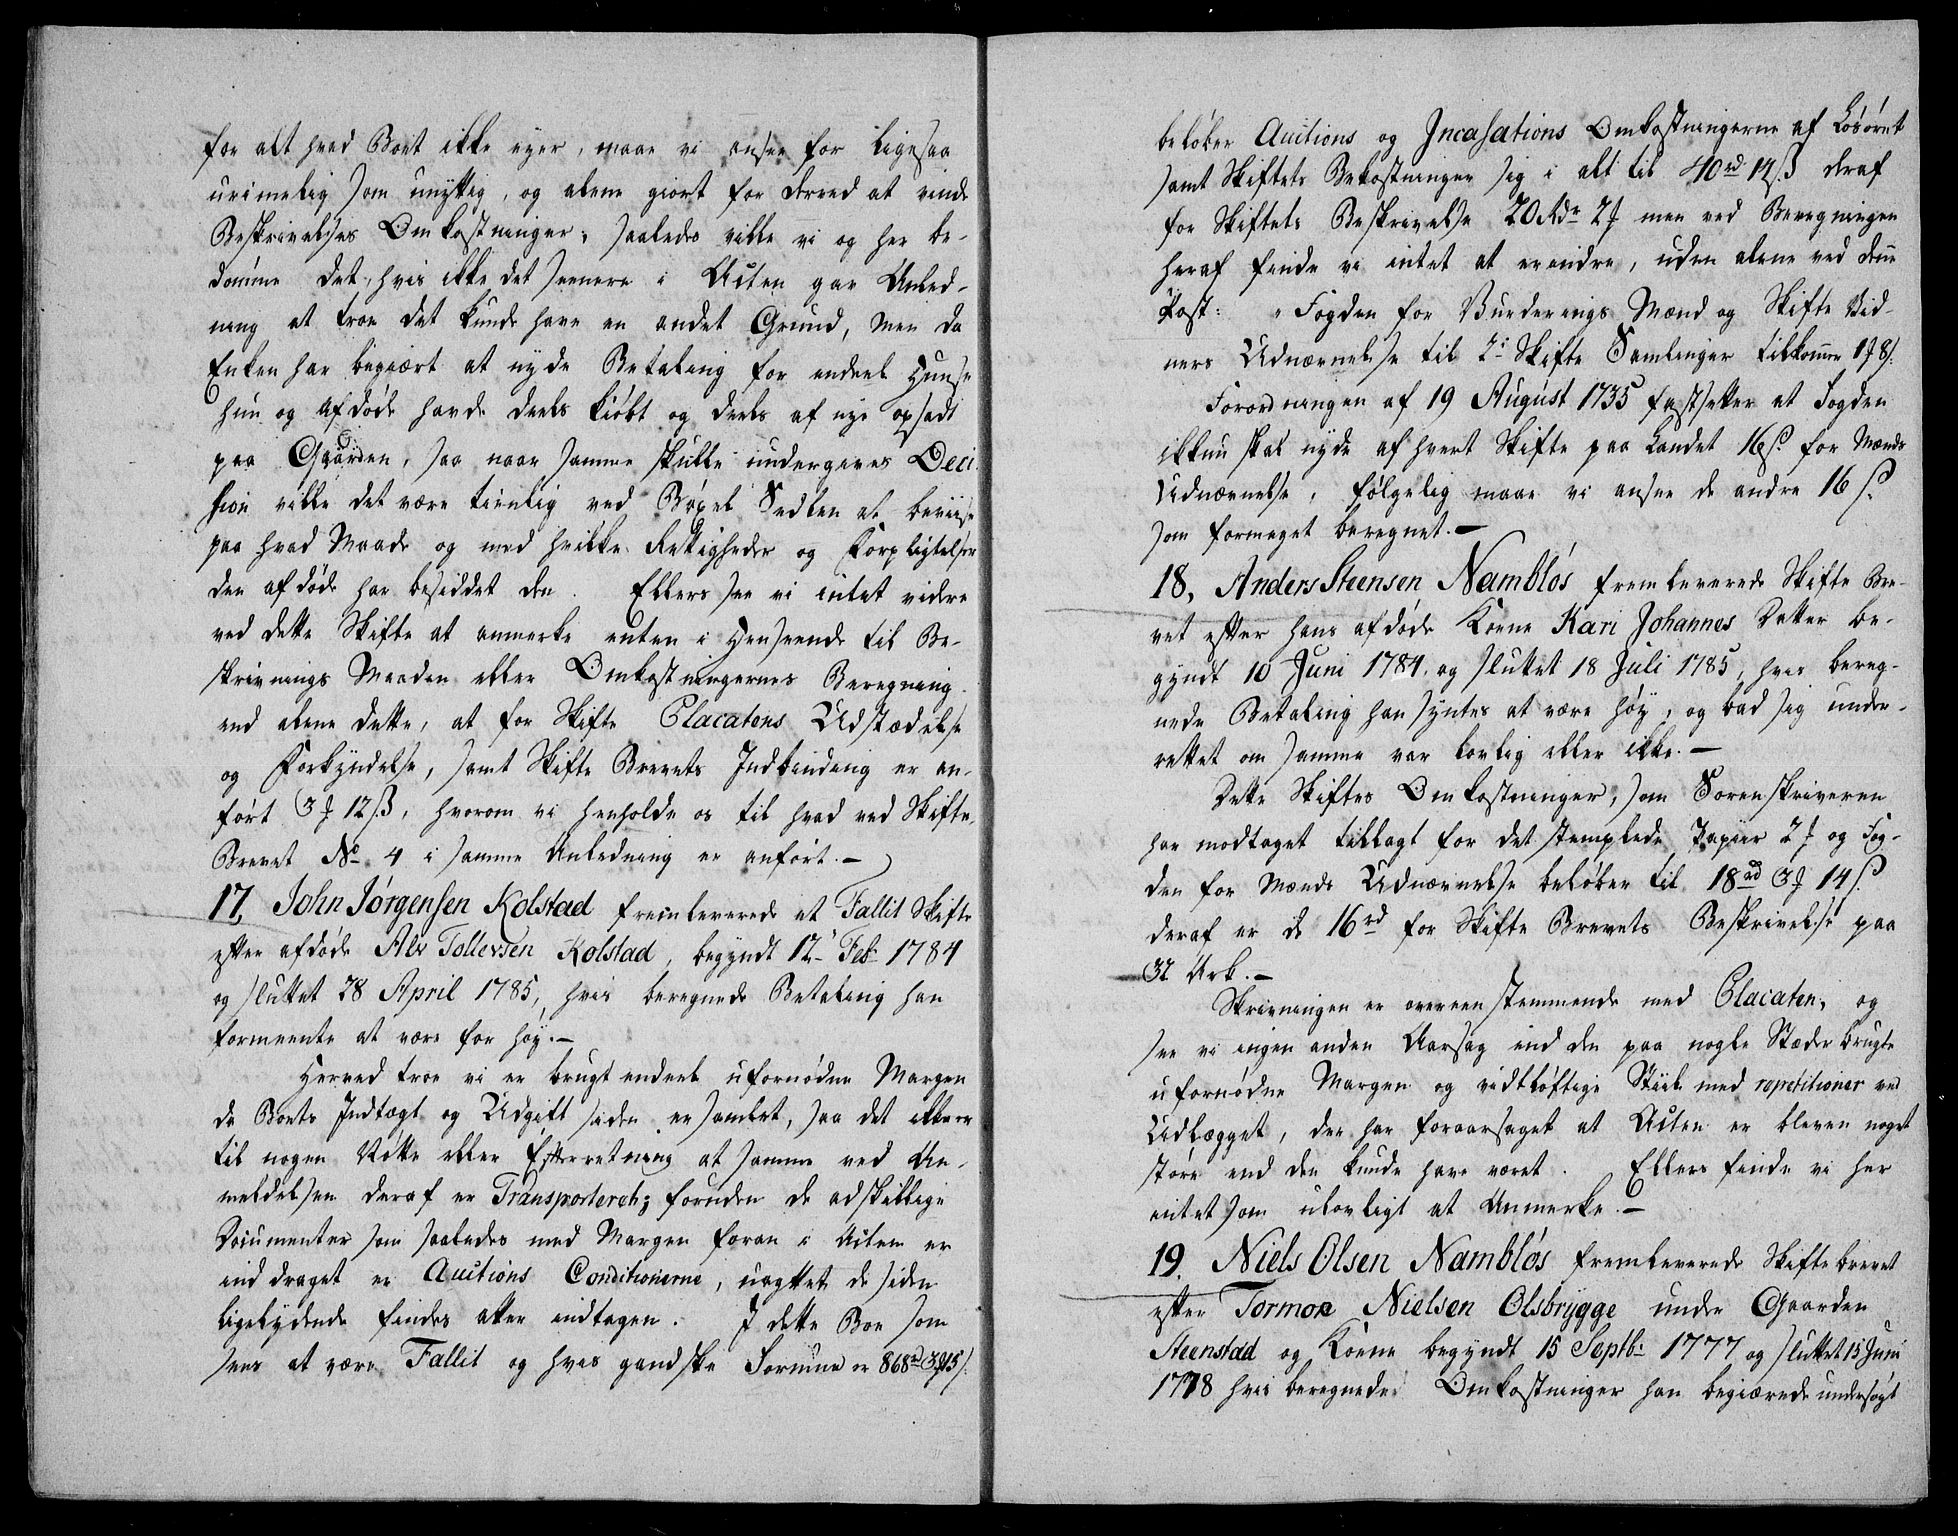 for alt hvad Boet ikke eyer, maae vi ansee for ligesaa
urimelig som unyttig, og alene giort for derved at vinde
Beskrivelses Omkostninger, saaledes ville vi og her be-
dømme det, hvis ikke det seenere i Acten gav Anled-
ning at troe det kunde have en andet Grund, Men da
Enken har begiært at nyde Betaling for endeel Huuse
hun og Afdøde havde deels kiøbt og deels af nye opsadt
paa Gaarden, saa naar samme skulle undergives Deci-
sion ville det være tienlig ved Bøxel Sedlen at beviise
paa hvad Maade og med hvilke Rettigheder og Forpligtelser
den afdøde har besiddet den. Ellers see vi intet videre
ved dette Skifte at anmerke enten i Henseende til Be-
skrivnings Maaden eller Omkostningernes Beregning
end alene dette, at for Skifte Placatens Udstædelse
og Forkyndelse, samt Skifte Brevets Indbinding er an-
ført 3 12 ß, hvorom vi henholde os til hvad ved Skifte-
Brevet No 4 i samme Anledning er anført.-
17, John Jørgensen Kolstad fremleverede et Fallit Skifte
efter afdøde Alv Tollevsen Kolstad, begyndt 12 Feb: 1784
og sluttet 28 April 1785, hvis beregnede Betaling han
formeente at være for høy.-
Herved troe vi er brugt endeel ufornøden Margen
da Boets Indtægt og Udgift siden er samlet, saa det ikke er
til nogen Nytte eller Efterretning at samme ved An-
meldelsen deraf er Transporteret; foruden de adskillige
Documenter som saaledes med Margen foran i Acten er
inddraget er Auctions Conditionerne, uagttet de siden
ligelydende findes atter indtagen. I dette Boe som
sees at være Fallit og hvis gandske Summe er 868 rd 3 15 s.
beløber Auctions og Incassations Omkostningerne af Løsøret
samt Skiftets Bekostninger sig i alt til 40 rd 14 ß deraf
for Skiftets Beskrivelse 20 Rdr 2 men ved Beregningen
heraf finde vi intet at erindre, uden alene ved denne
Post: " Fogden for Vurderings Mænd og Skifte Vid-
ners Udnævnelse til 2 Skifte Samlinger tilkommer 1 8 s.
Forordningen af 19 August 1735 fastsetter at Fogden
ikkun skal nyde af hvert Skifte paa Landet 16 s. for Mænds
Udnævnelse, følgelig maae vi ansee de andre 16 s.
som formeget beregnet.-
18, Anders Steensen Nambløs fremleverede Skifte Bre-
vet efter hans afdøde Kone Kari Johannes Datter be-
gyndt 10 Juni 1784. og sluttet 18 Juli 1785, hvis bereg-
nede Betaling han syntes at være høy, og bad sig under-
rettet om samme var lovlig eller ikke.-
Dette Skiftes Omkostninger, som Sorenskriveren
har modtaget tillagt for det stemplede Papier 2 og Fog-
den for Mænds Udnævnelse beløber til 18 rd 3 14 s.
deraf er de 16 rd for Skifte Brevets Beskrivelse paa
32 Ark.-
Skrivningen er overeenstemmende med Placaten, og
see vi ingen anden Aarsag end den paa nogle Stæder brugte
ufornødne Margen og vidtløftige Stiil med repetitioner ved
Udlægget, der har foraarsaget at Acten er bleven noget
støre end den kunde have været. Ellers finde vi her
intet som ulovligt at Anmerke.-
19. Niels Olsen Nambløs fremleverede Skiftebrevet
efter Tormoe Nielsen Olsbrygge under Gaarden
Steenstad og Kone begyndt 15 Septb: 1777 og sluttet 15 Juni
1778 hvis beregnede Omkostninger han begiærede undersøgt